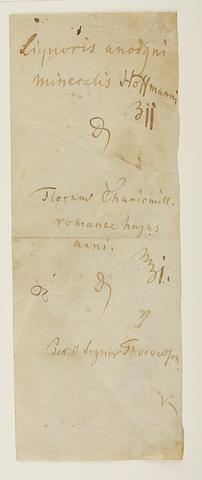 Liquoris anodyni
mineralis Hoffmanni
ʒii
Florum Chamomill.
romanae hujus
anni.
ʒi.
Per il Signor